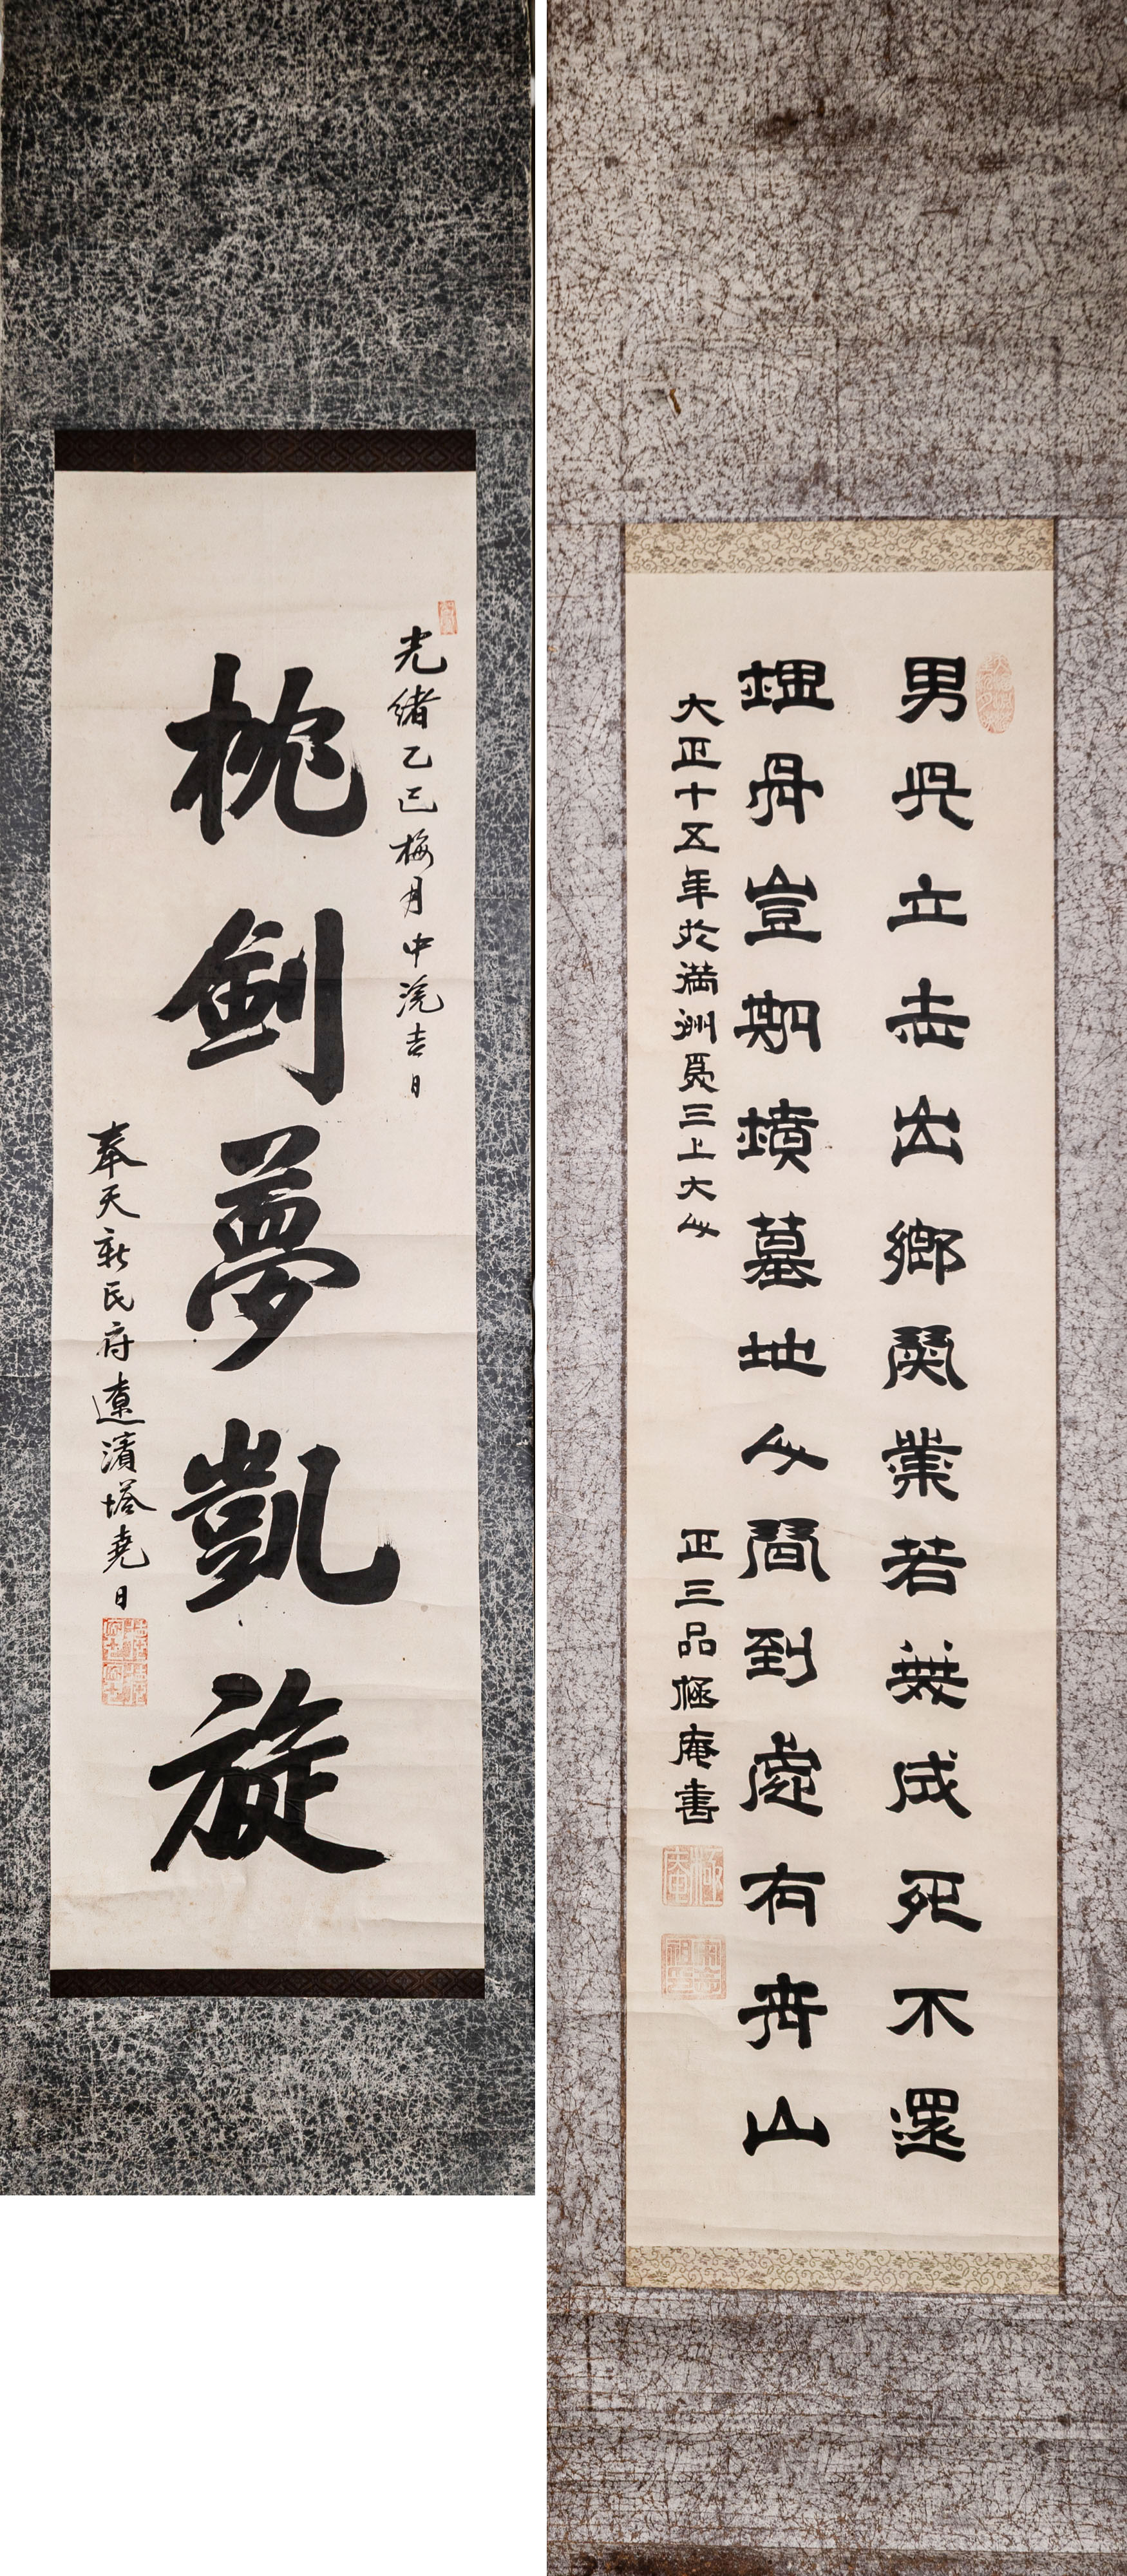 光緒乙巳梅月中浣吉日
枕劍夢凱旋
奉天新民府遼濱塔堯日
男児立志出鄉関業若無成死不還
埋骨豈期墳墓地人間到處有青山
大正十五年於満洲為三上大人
正三品極庵書